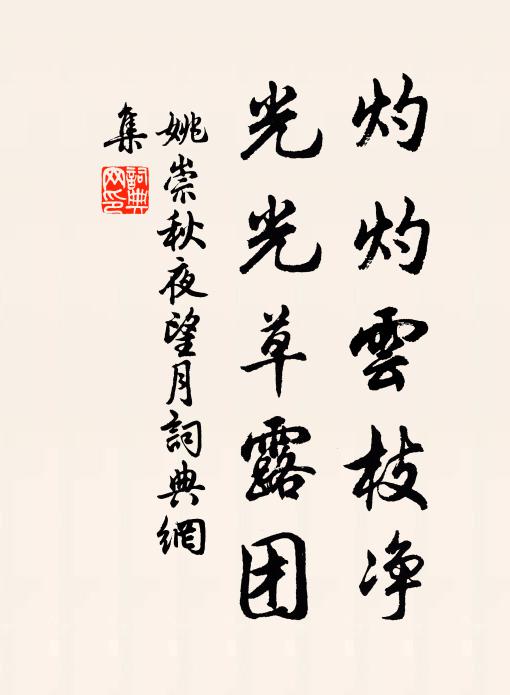 灼灼雲枝净
光光草露团
姚崇秋夜望月詞典網
集
詞典
网印